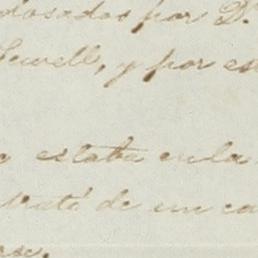 dosados por D.
Sewell, y por es
estaba en la
trató de un ca